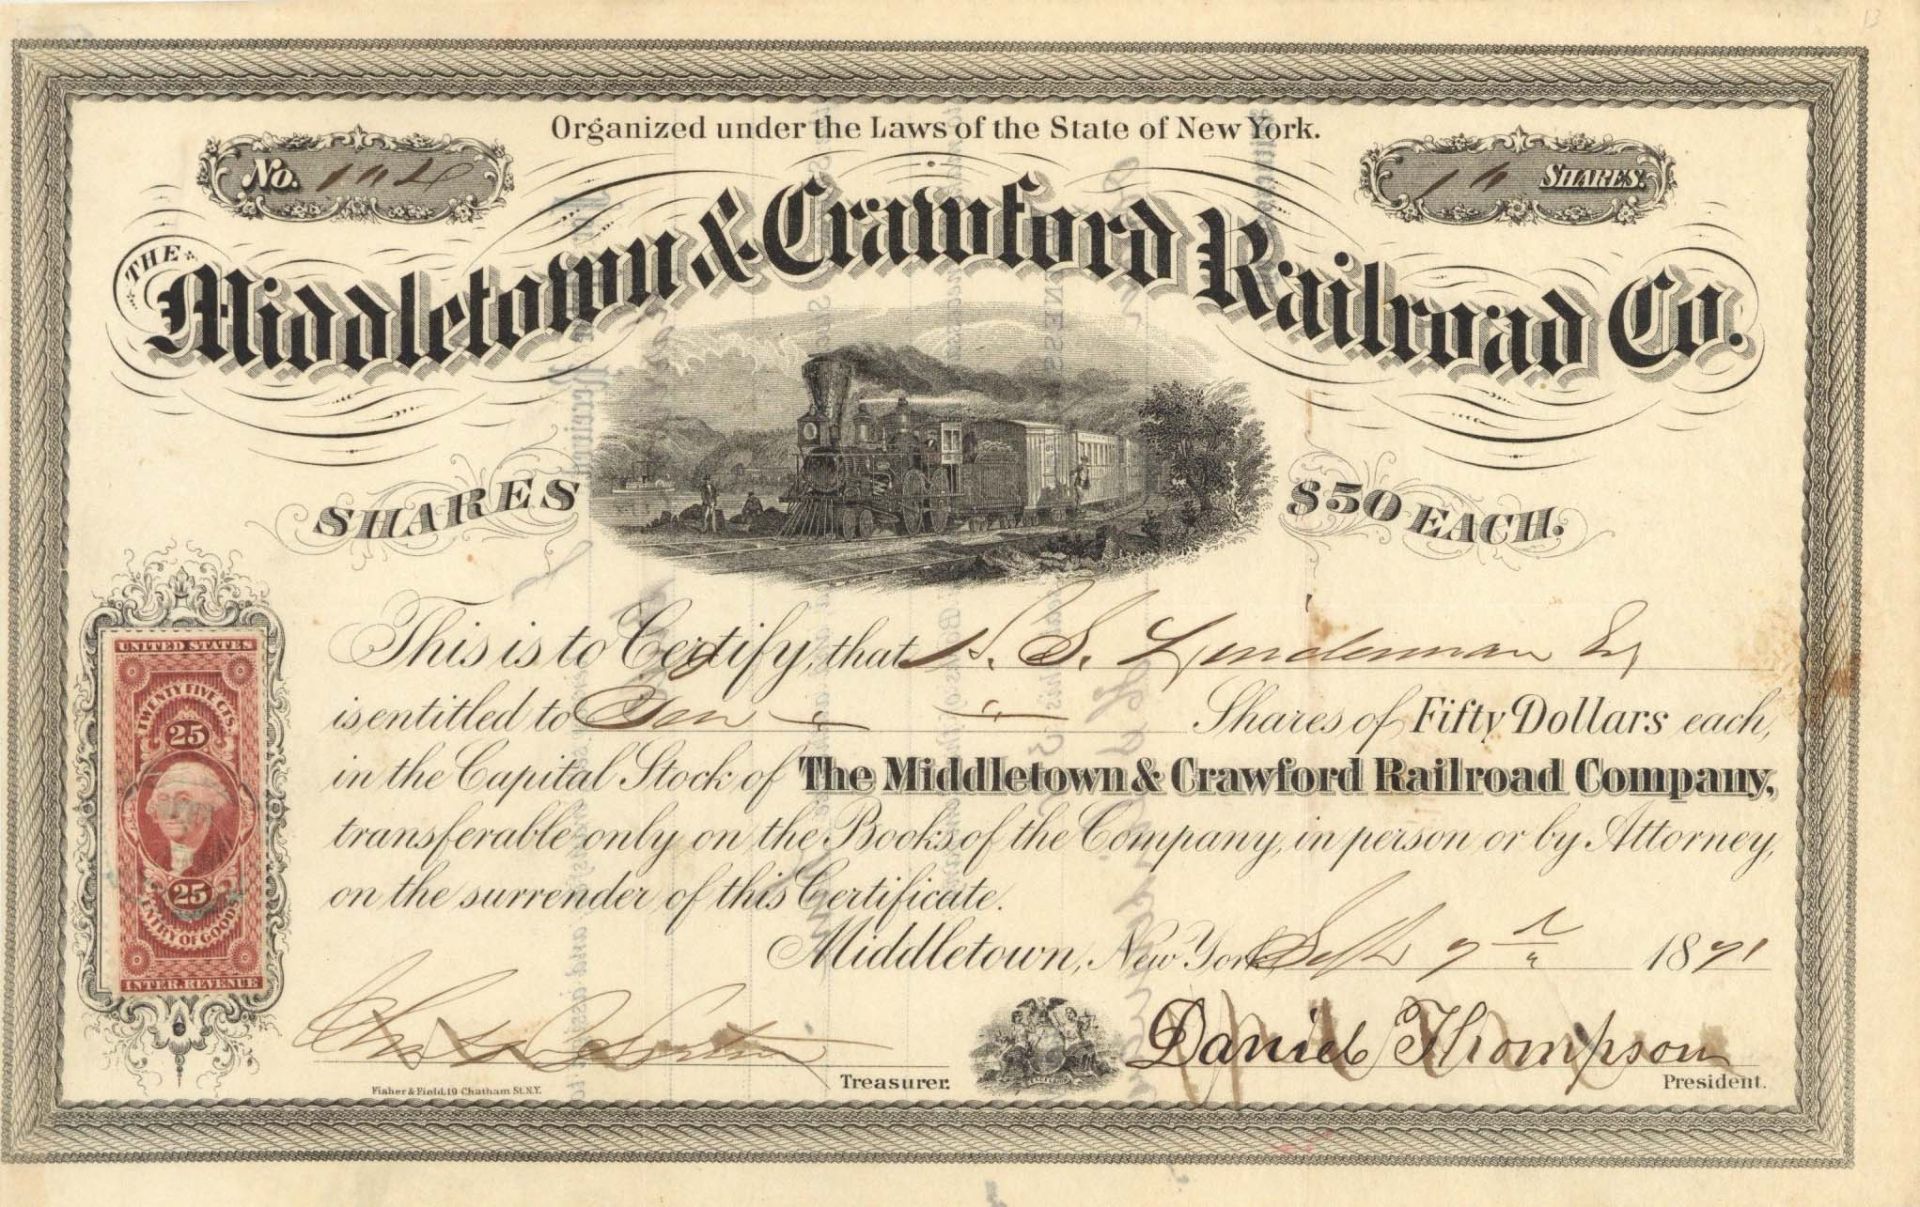 Organized under the Laws of the State of New York.
No. 102
10 SHARES.
THE
Middletown & Crawford Railroad Co.
SHARES $50 EACH.
This is to Certify, that H. S. Lindenman Esq
is entitled to Ten Shares of Fifty Dollars each,
in the Capital Stock of The Middletown & Crawford Railroad Company,
transferable only on the Books of the Company, in person or by Attorney,
on the surrender of this Certificate.
Middletown, New York Sept 9th 1871
Treasurer.
Daniel Thompson
President.
Fisher & Field, 19 Chatham St. N.Y.
UNITED STATES
TWENTY FIVE CTS.
25
25
ENTRY OF GOODS
INTER. REVENUE
EXCELSIOR
13